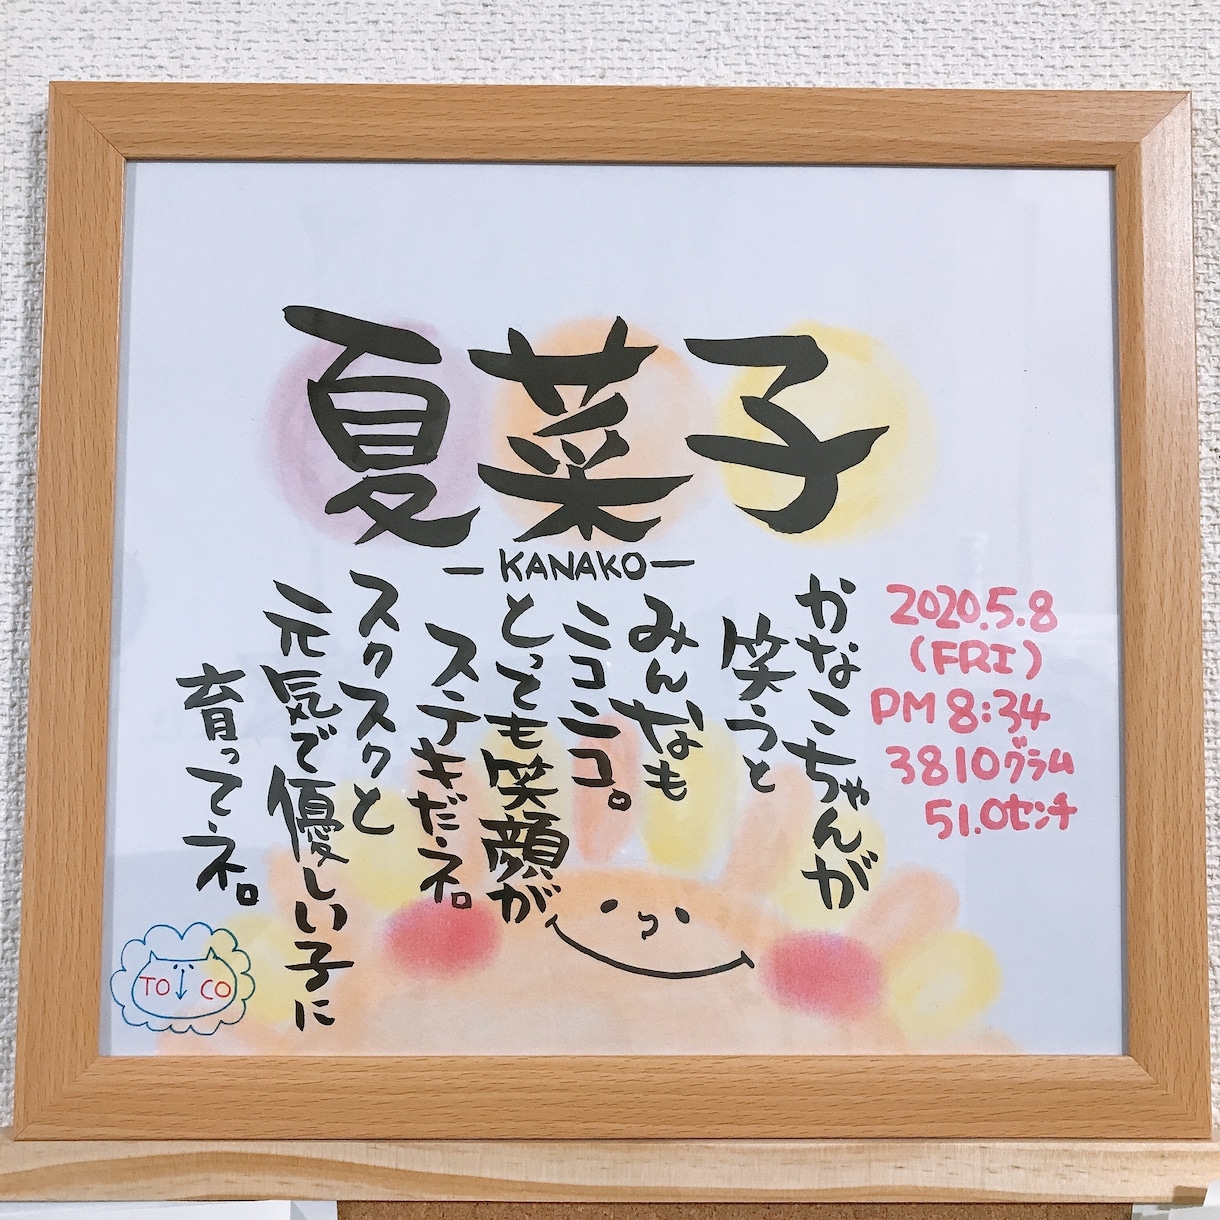 夏菜子
-KANAKO-
2020.5.8
(FRI)
PM 8:34
3810グラム
51.0センチ
かなこちゃんが
笑うと
みんなも
ニコニコ。
とっても笑顔が
ステキだネ。
スクスクと
元気で優しい子に
育ってネ。
TO CO